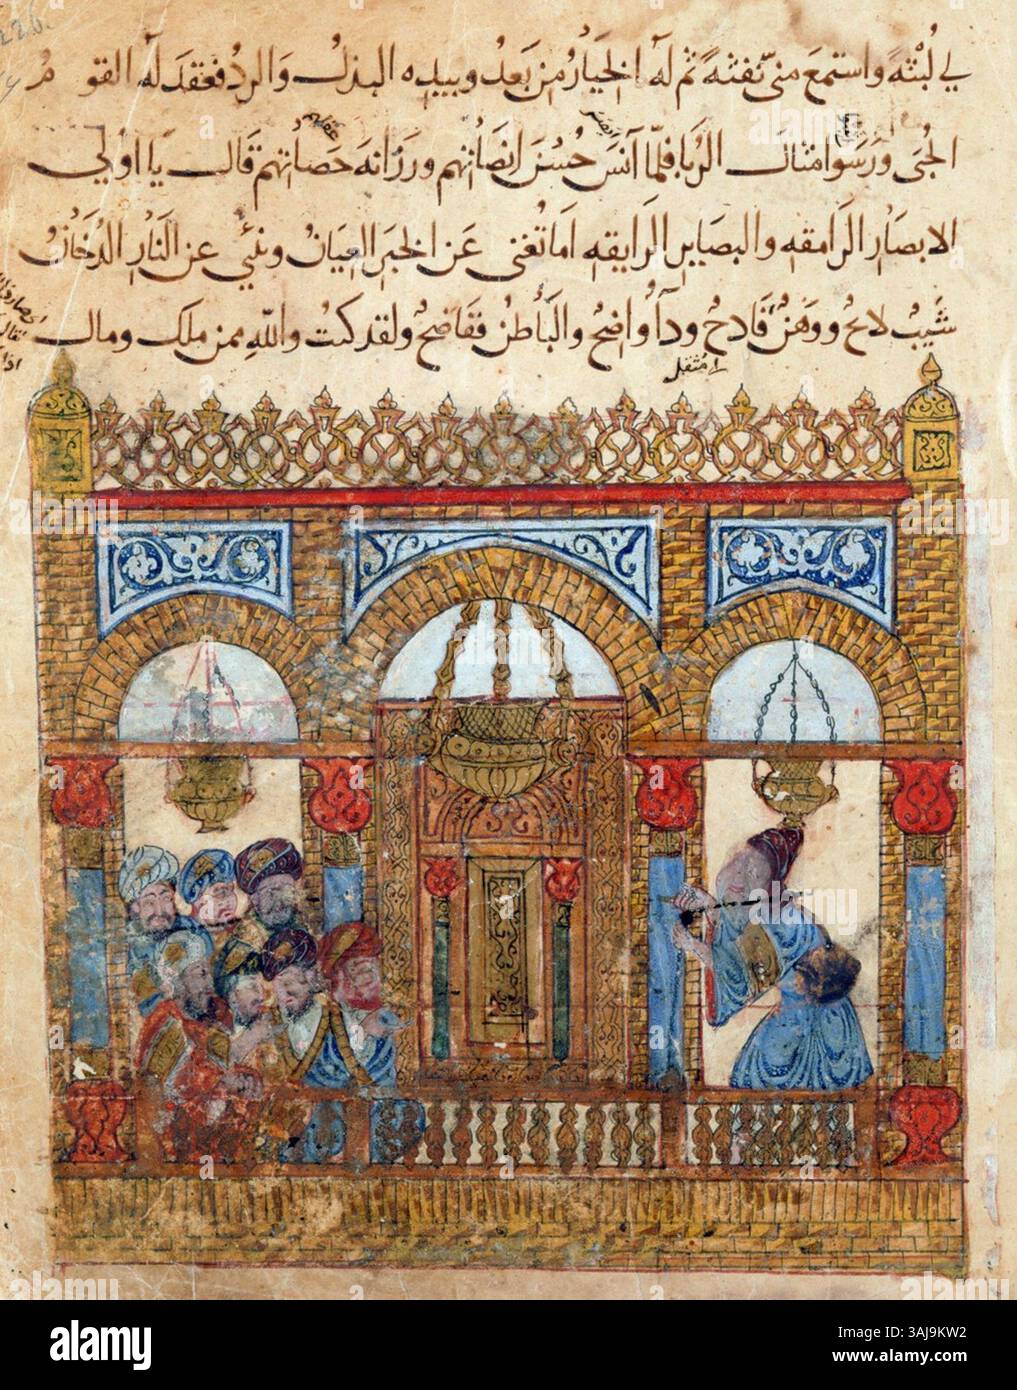 في لُبْثَهً واستمعَ منّي نَفثهً ثم له الخيارُ من بَعدُ وبيدِه البذلُ والردُ فعقدَ له القومُ
الحُبَى ورَسَوا امثالَ الرُبا فلمّا آنسَ حُسْنَ اِنصَاتهم ورَزَانهَ حَصَاتهم قالَ يا اولي
الابصَارِ الرَامقه والبصَايرِ الرَايقه اما تُغْنى عَن الخبرِ العِيَانُ وتنبّي عن النَارِ الدُخَانُ
شَيبٌ لائحٌ ووهَنٌ فَادحٌ ودآءٌ واضحٌ والبَاطنُ ففاضحٌ ولقد كنتُ واللّهِ ممن ملك ومال
عقلهم
اى مثقل
alamy
alamy
Image ID: 3AJ9KW2
www.alamy.com